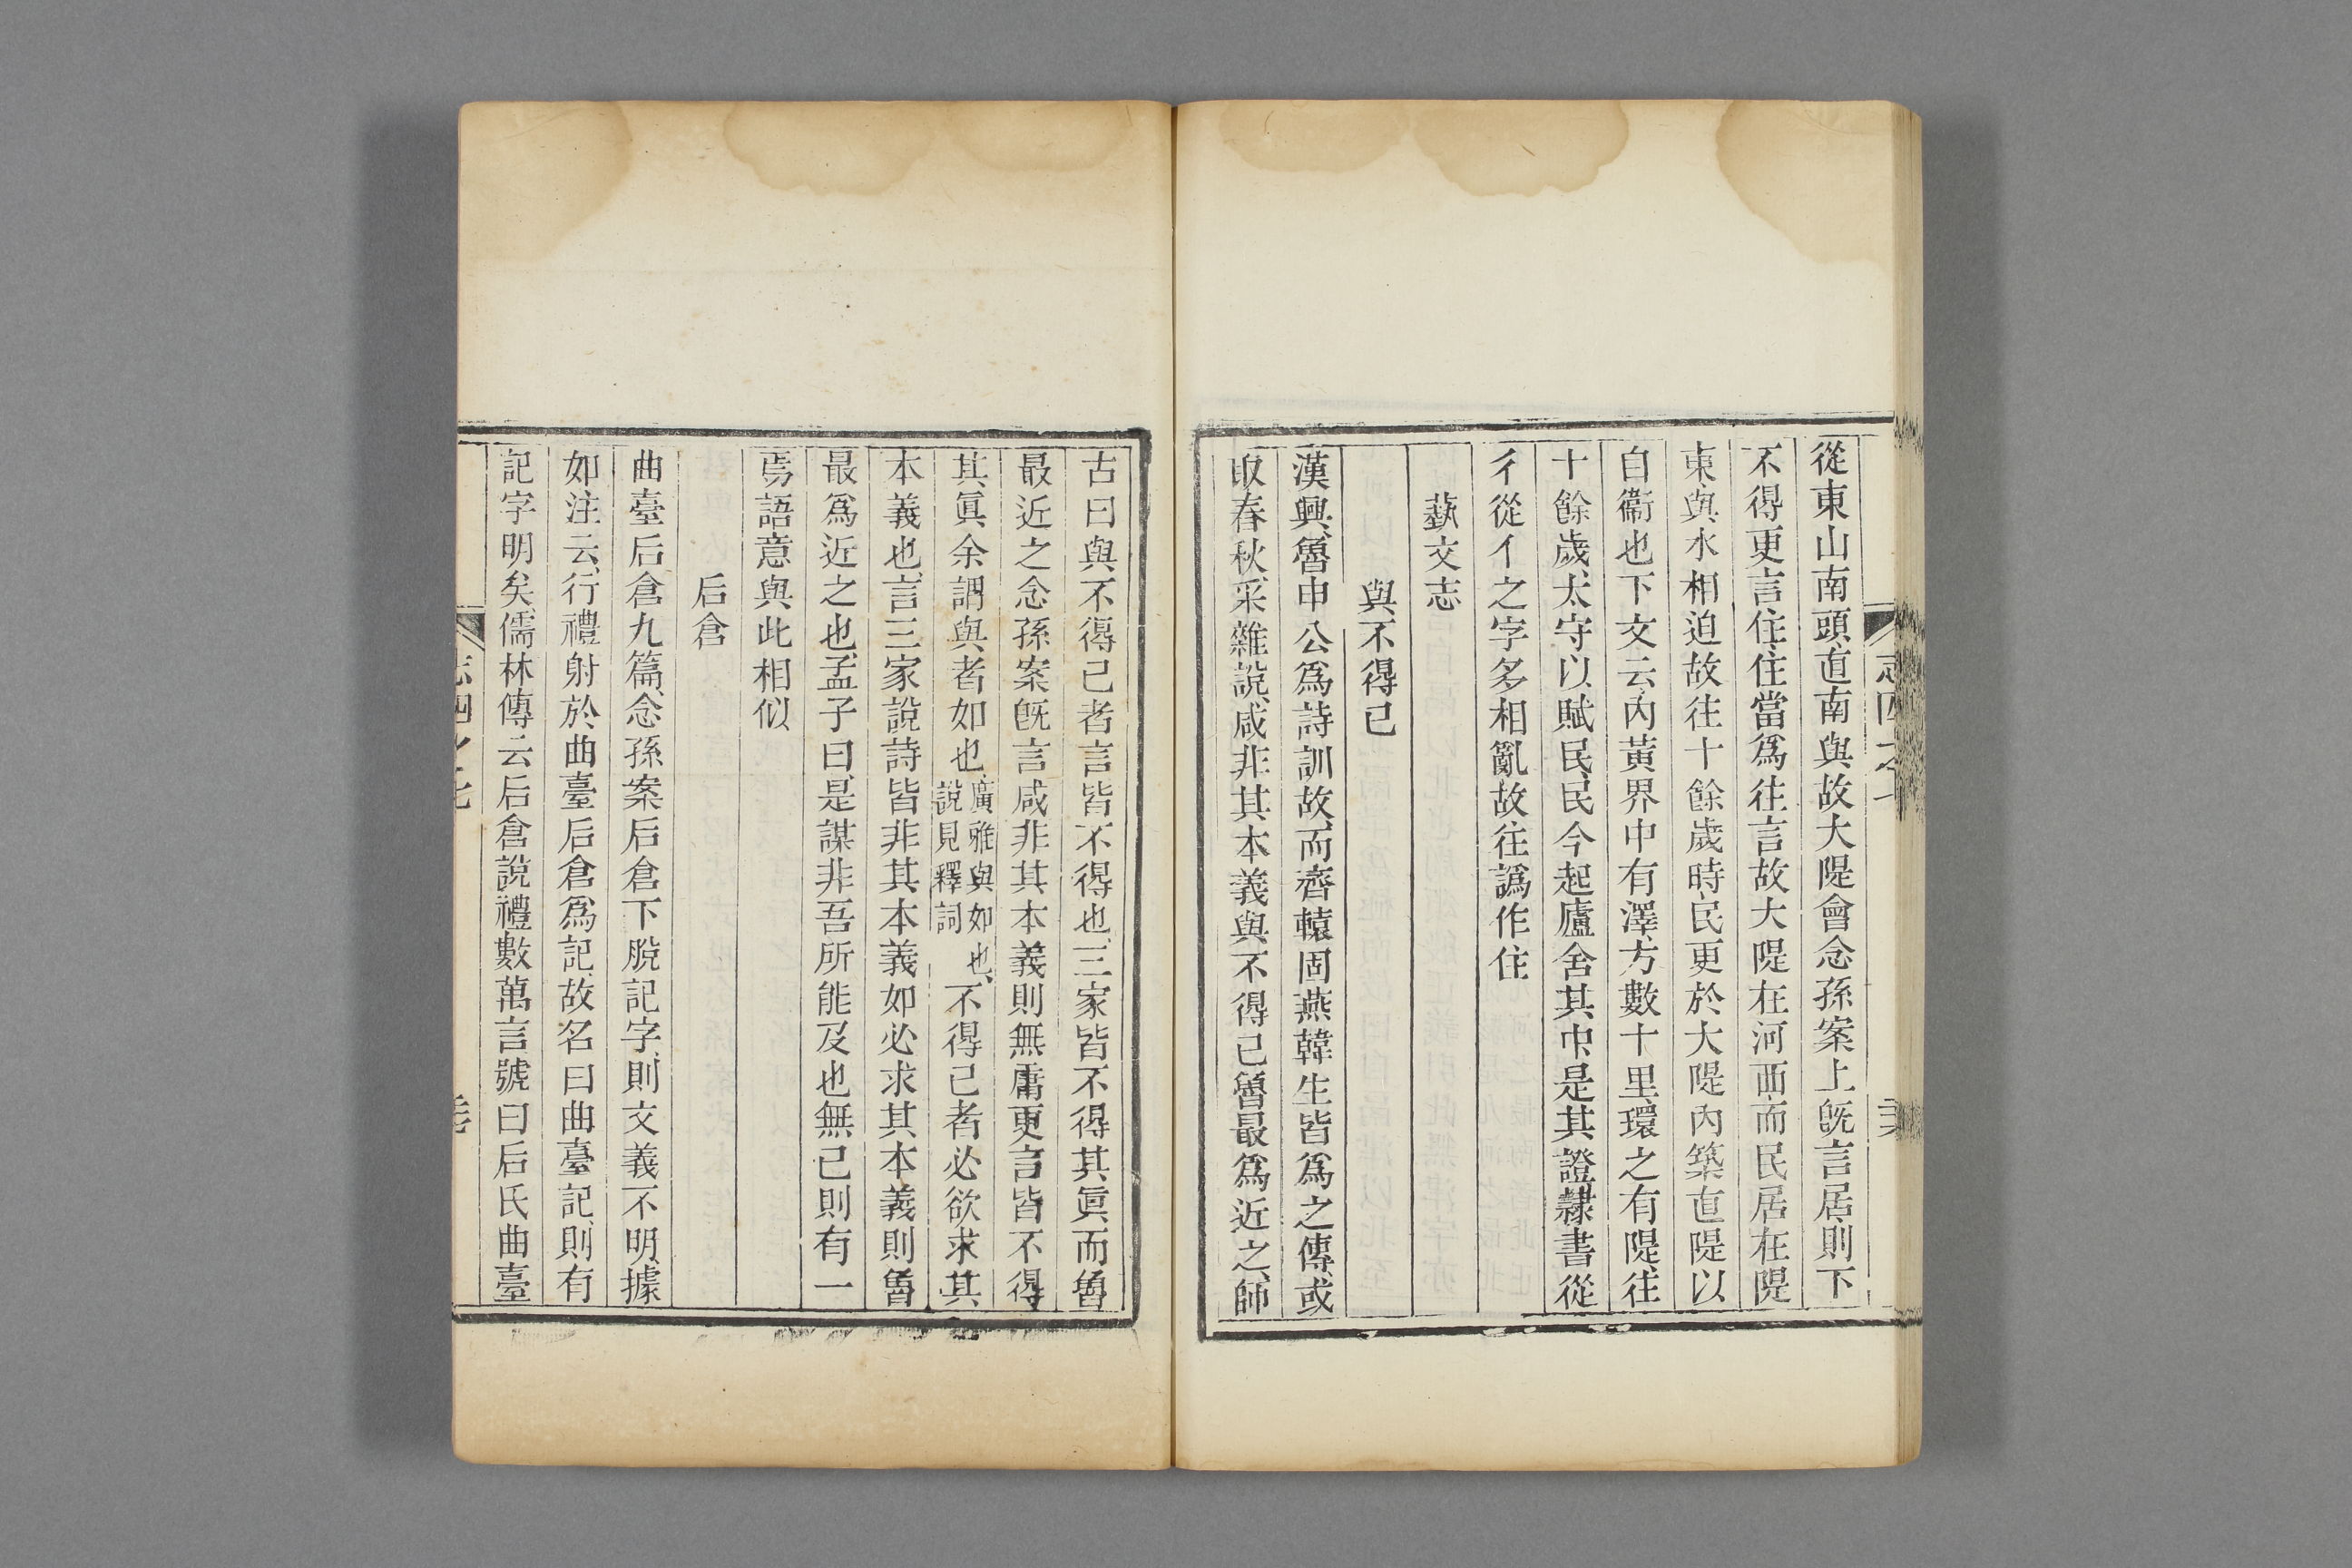 從東山南頭直南與故大隄會念孫案上旣言居則下
不得更言住住當爲往言故大隄在河西而民居在隄
東與水相迫故往十餘歲時民更於大隄內築直隄以
自衞也下文云內黃界中有澤方數十里環之有隄往
十餘歲太守以賦民民今起廬舍其中是其證隸書從
彳從亻之字多相亂故往譌作住
藝文志
與不得已
漢興魯申公爲詩訓故而齊轅固燕韓生皆爲之傳或
取春秋采雜說咸非其本義與不得已魯最爲近之師
古曰與不得已者言皆不得也三家皆不得其眞而魯
最近之念孫案旣言咸非其本義則無庸更言皆不得
其眞余謂與者如也廣雅與如也說見釋詞不得已者必欲求其
本義也言三家說詩皆非其本義如必求其本義則魯
最爲近之也孟子曰是謀非吾所能及也無已則有一
焉語意與此相似
后倉
曲臺后倉九篇念孫案后倉下脫記字則文義不明據
如注云行禮射於曲臺后倉爲記故名曰曲臺記則有
記字明矣儒林傳云后倉說禮數萬言號曰后氏曲臺